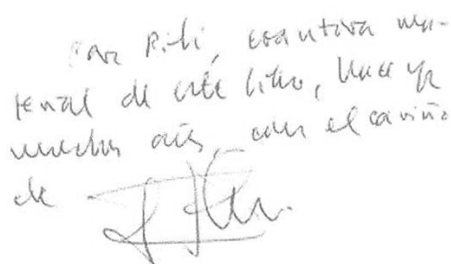 Para Pili, coautora ma-
terial de este libro, hace ya
muchos años, con el cariño
de